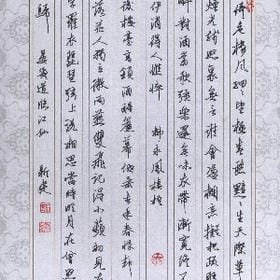 倚危樓風細細望極春愁黯黯生天際草
煙光殘照裏無言誰會憑闌意擬把疏
對酒當歌強樂還無味衣帶漸寬終不
伊消得人憔悴 柳永鳳棲梧
後樓臺高鎖酒醒簾幕低垂去年春恨却
落花人獨立微雨燕雙飛記得小蘋初見
字羅衣琵琶弦上說相思當時明月在曾照
歸 晏幾道臨江仙